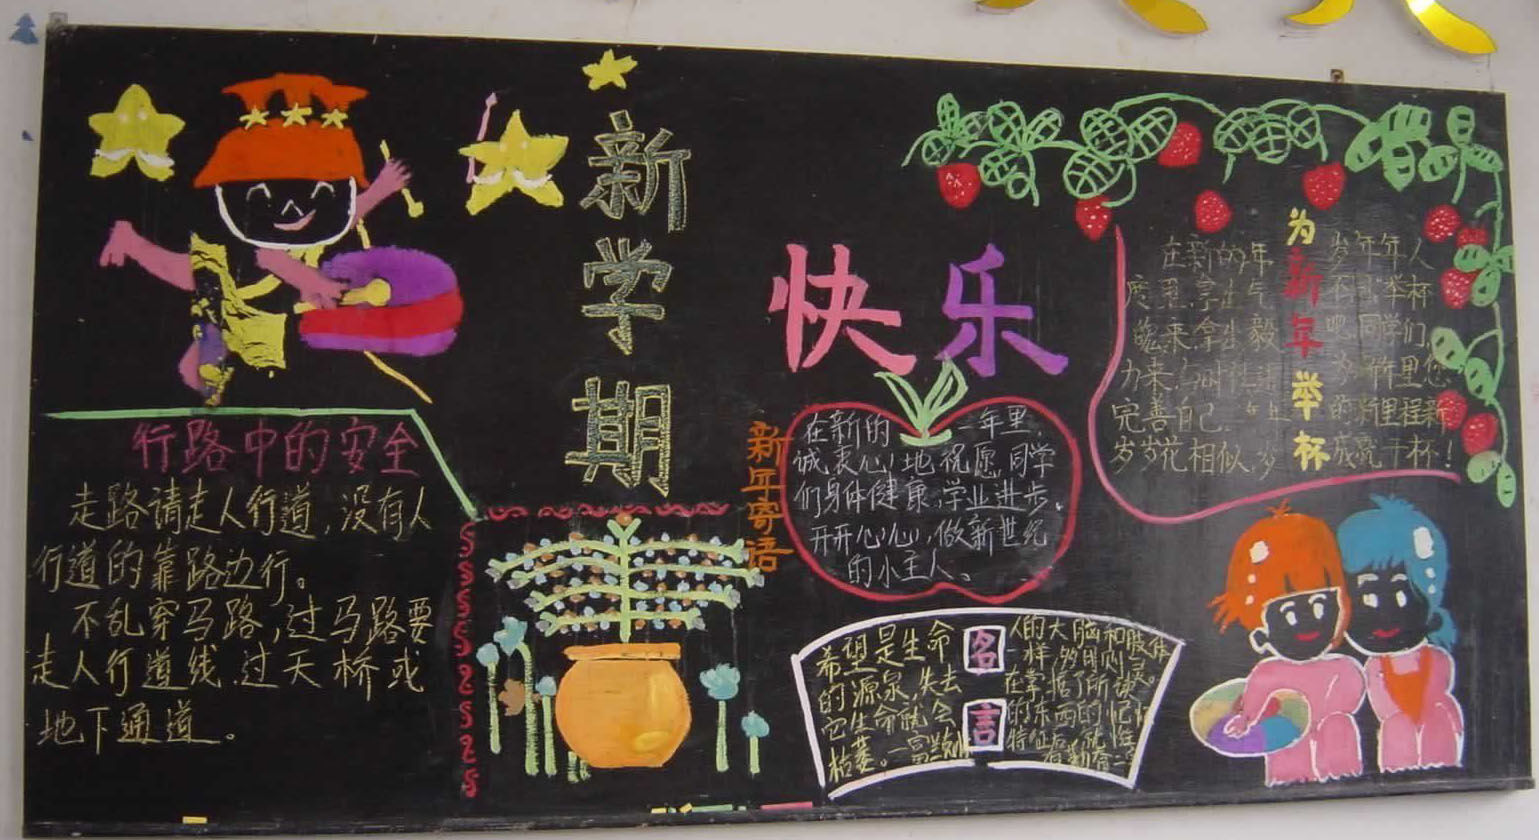 新学期
快乐
行路中的安全
走路请走人行道,没有人
行道的靠路边行。
不乱穿马路,过马路要
走人行道线.过天桥或
地下通道。
新年寄语
在新的一年里
诚衷心地祝愿同学
们身体健康.学业进步.
开开心心,做新世纪
的小主人。
为新年举杯
在新的年
度里,拿出
来,拿出毅
力来
完善自己.
岁岁花相似,岁
岁年年人
举杯
吧,同学们,
的新里程新
干杯!
名言
希望是生命
的源泉,失去
它生命就会
枯萎。一富兰
人的大脑和肢体
一样
在掌
的东西的记忆